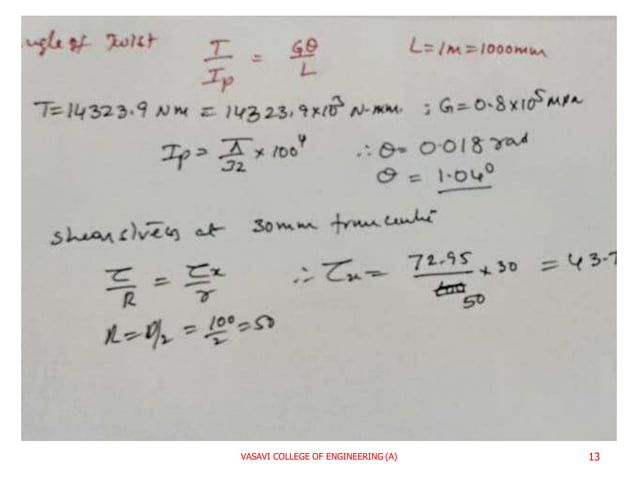 ngle of Twist T/Ip = Gθ/L L=1m=1000mm
T=14323.9 Nm = 14323.9x10³ N-mm. ; G=0.8x10⁵ MPa
Ip = π/32 x 100⁴ ∴ θ= 0.018 rad
θ = 1.04⁰
shear stress at 30mm from centre
τ/R = τx/r ∴ τx = 72.95/50 x 30 = 43.7
R=D/2 = 100/2 = 50
VASAVI COLLEGE OF ENGINEERING (A) 13